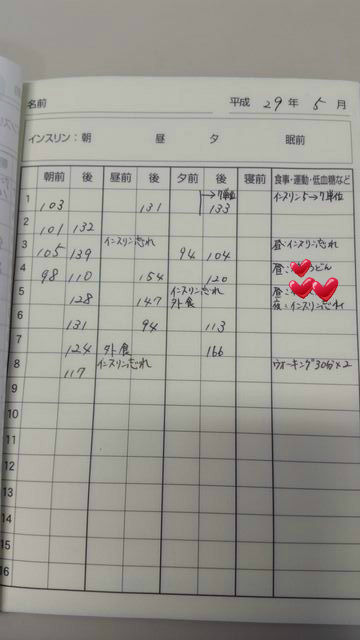 名前 平成 29 年 5 月
インスリン：朝 昼 夕 眠前
朝前 後 昼前 後 夕前 後 寝前 食事・運動・低血糖など
→7単位 インスリン5→7単位
1 103 131 133
2 101 132
3 インスリン忘れ 昼：インスリン忘れ
105 139 94 104
4 98 110 154 120 昼： うどん
5 インスリン忘れ 昼：
128 147 外食 夜：インスリン忘れ
6 131 94 113
7 124 外食 166
8 117 インスリン忘れ ウォーキング30分×2
9
10
11
12
13
14
15
16